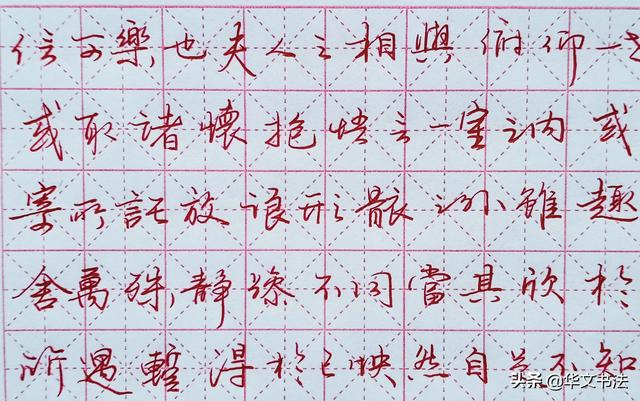 信可樂也夫人之相與俯仰一世
或取諸懷抱悟言一室之內或
寄所託放浪形骸之外雖趣
舍萬殊靜躁不同當其欣於
所遇暫得於己怏然自足不知
头条 @华文书法